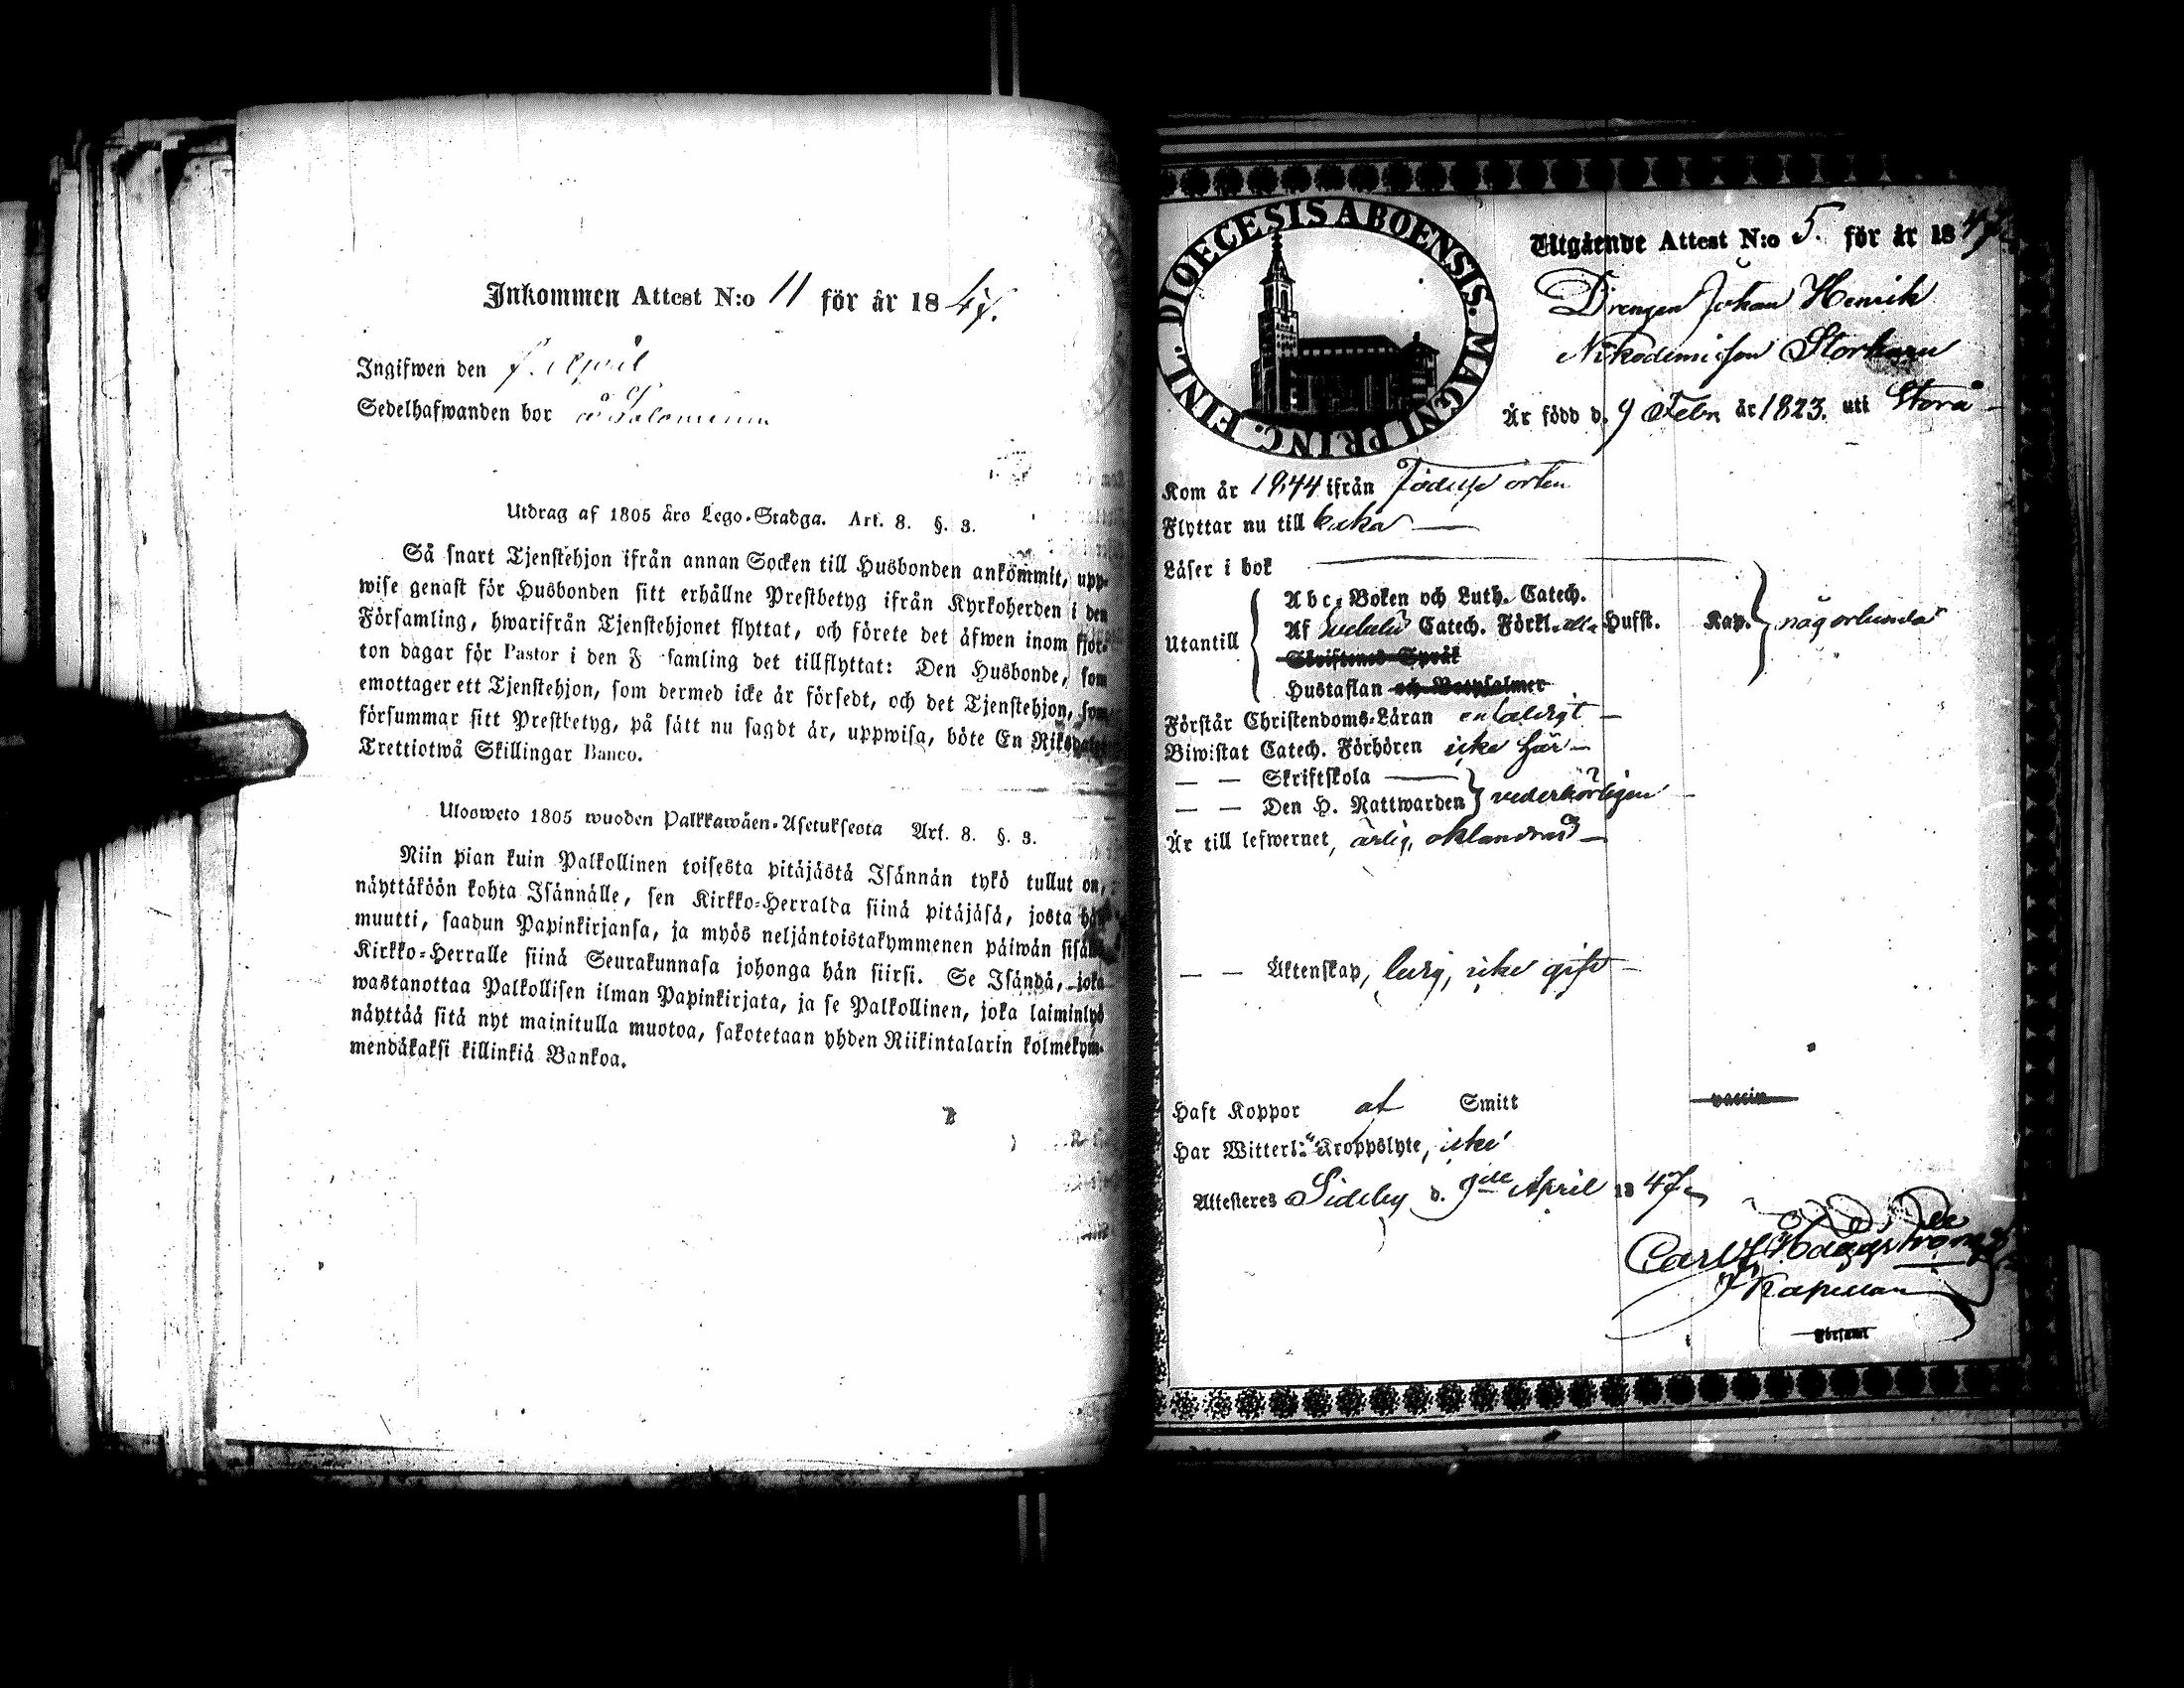 Inkommen Attest N:o 11 för år 1847.
Ingifwen den April
Sedelhafwanden bor å
Utdrag af 1805 års Lego-Stadga. Art. 8. §. 3.
Så snart Tjenstehjon ifrån annan Socken till Husbonden ankommit, upp-
wise genast för Husbonden sitt erhållne Prestbetyg ifrån Kyrkoherden i den
Församling, hwarifrån Tjenstehjonet flyttat, och förete det äfwen inom fjor-
ton dagar för Pastor i den F samling det tillflyttat: Den Husbonde, som
emottager ett Tjenstehjon, som dermed icke är försedt, och det Tjenstehjon, som
försummar sitt Prestbetyg, på sätt nu sagdt är, uppwisa, böte En Riksdaler
Trettiotwå Skillingar Banco.
Ulosweto 1805 wuoden Palkkawäen-Asetuksesta Art. 8. §. 3.
Niin pian kuin Palkollinen toisesta pitäjästä Isännän tykö tullut on,
näyttäköön kohta Isännälle, sen Kirkko-Herralda siinä pitäjäsä, josta hän
muutti, saadun Papinkirjansa, ja myös neljäntoistakymmenen päiwän sisällä
Kirkko-Herralle siinä Seurakunnasa johonga hän siirsi. Se Isändä, joka
wastanottaa Palkollisen ilman Papinkirjata, ja se Palkollinen, joka laiminlyö
näyttää sitä nyt mainitulla muotoa, sakotetaan yhden Riikintalarin kolmekym-
mendäkaksi killinkiä Bankoa.
DIOECESIS ABOENSIS. MAGNI PRINC. FINL.
Utgående Attest N:o 5. för år 1847
Drengen Johan Henrik
Nikodemisson Storkaru
Är född d. 9 Febr år 1823. uti Storå
Kom år 1844 ifrån Födelse orten
Flyttar nu till
Läser i bok
Utantill
Abc-Boken och Luth. Catech.
Af Svebelii Catech. Förkl. alla Husst. Kap. någorlunda
Skriftenes Språk
Hustaflan och Botpsalmer
Förstår Christendoms-Läran enfaldigt
Biwistat Catech. Förhören icke här
— — Skriftskola
— — Den H. Nattwarden vederbörligen
Är till lefwernet, ärlig, oklandrad
— — Äktenskap, ledig, icke gift
Haft Koppor af Smitt vaccin
Har Witterl. Kroppslyte, icke
Attesteres Sideby d. 9de April 1847
Carl Häggström
Kapellan
Församl